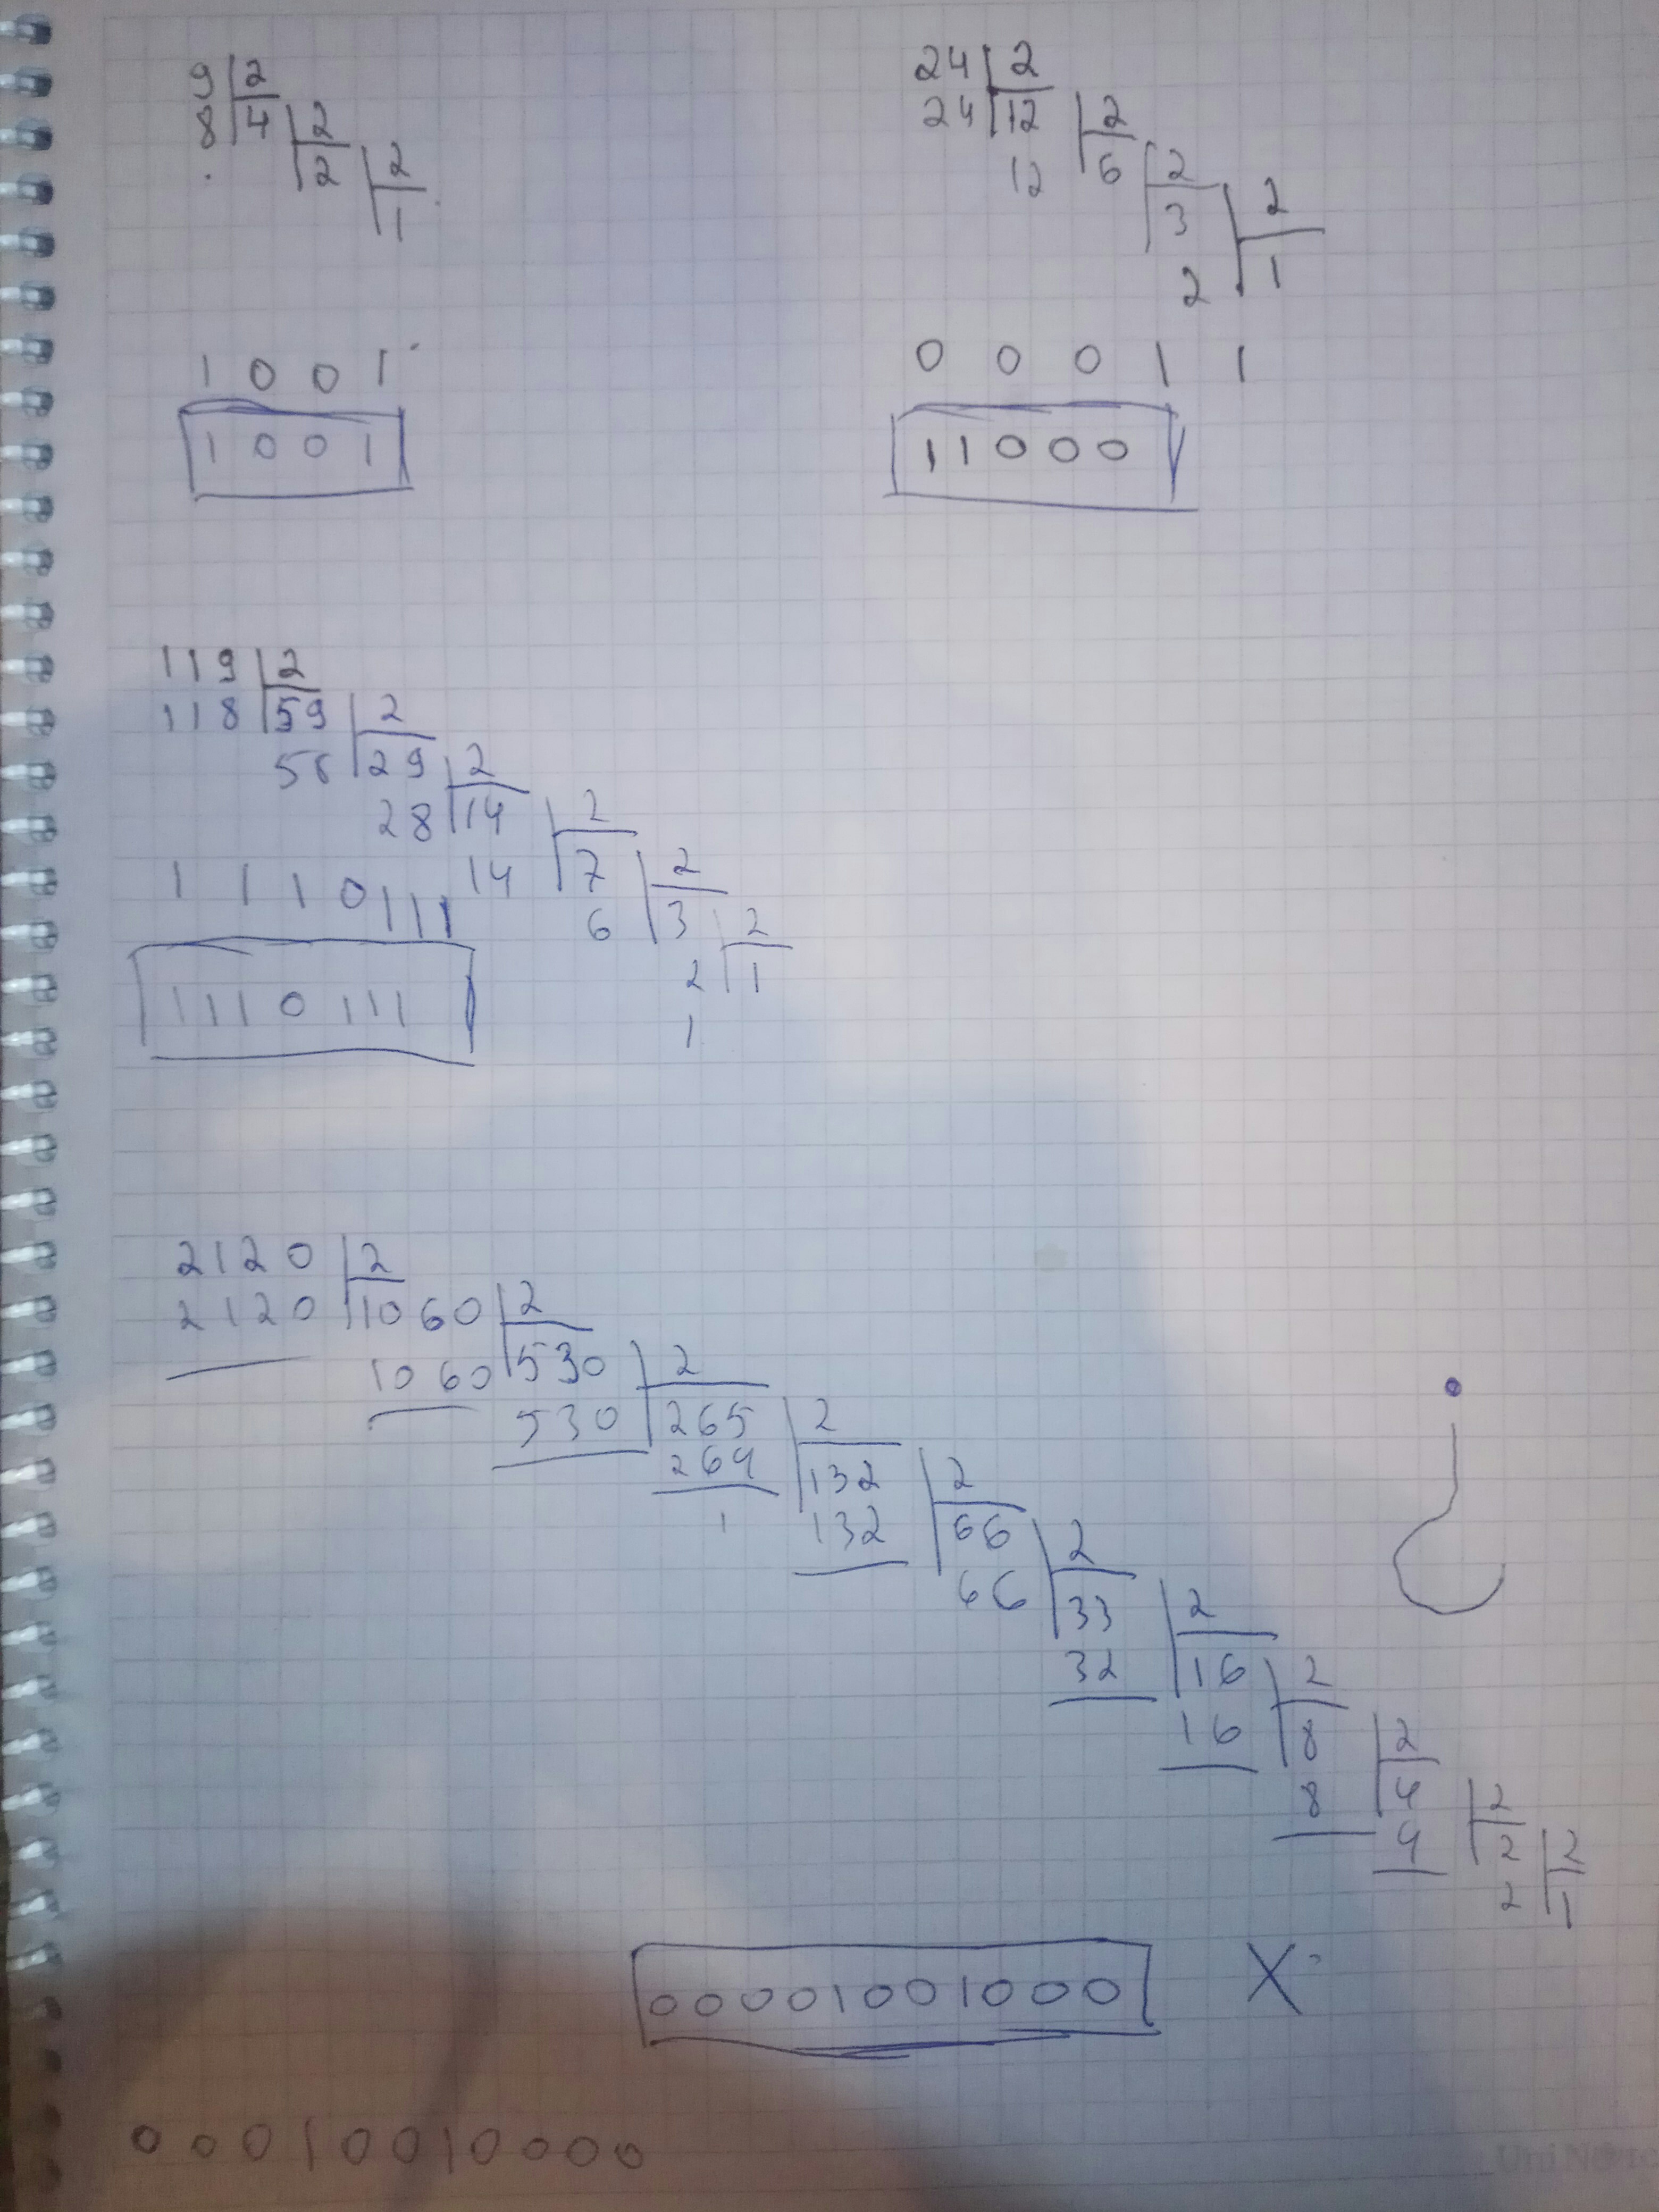 9 2
8 4 2
2 2
1
1 0 0 1
1 0 0 1
24 2
24 12 2
12 6 2
3 2
2 1
0 0 0 1 1
1 1 0 0 0
119 2
118 59 2
58 29 2
28 14 2
14 7 2
6 3 2
2 1
1
1 1 1 0 1 1 1
1 1 1 0 1 1 1
2120 2
2120 1060 2
1060 530 2
530 265 2
264 132 2
1 132 66 2
66 33 2
32 16 2
16 8 2
8 4 2
4 2 2
2 1
0 0 0 0 1 0 0 1 0 0 0 X
0 0 0 1 0 0 1 0 0 0 0